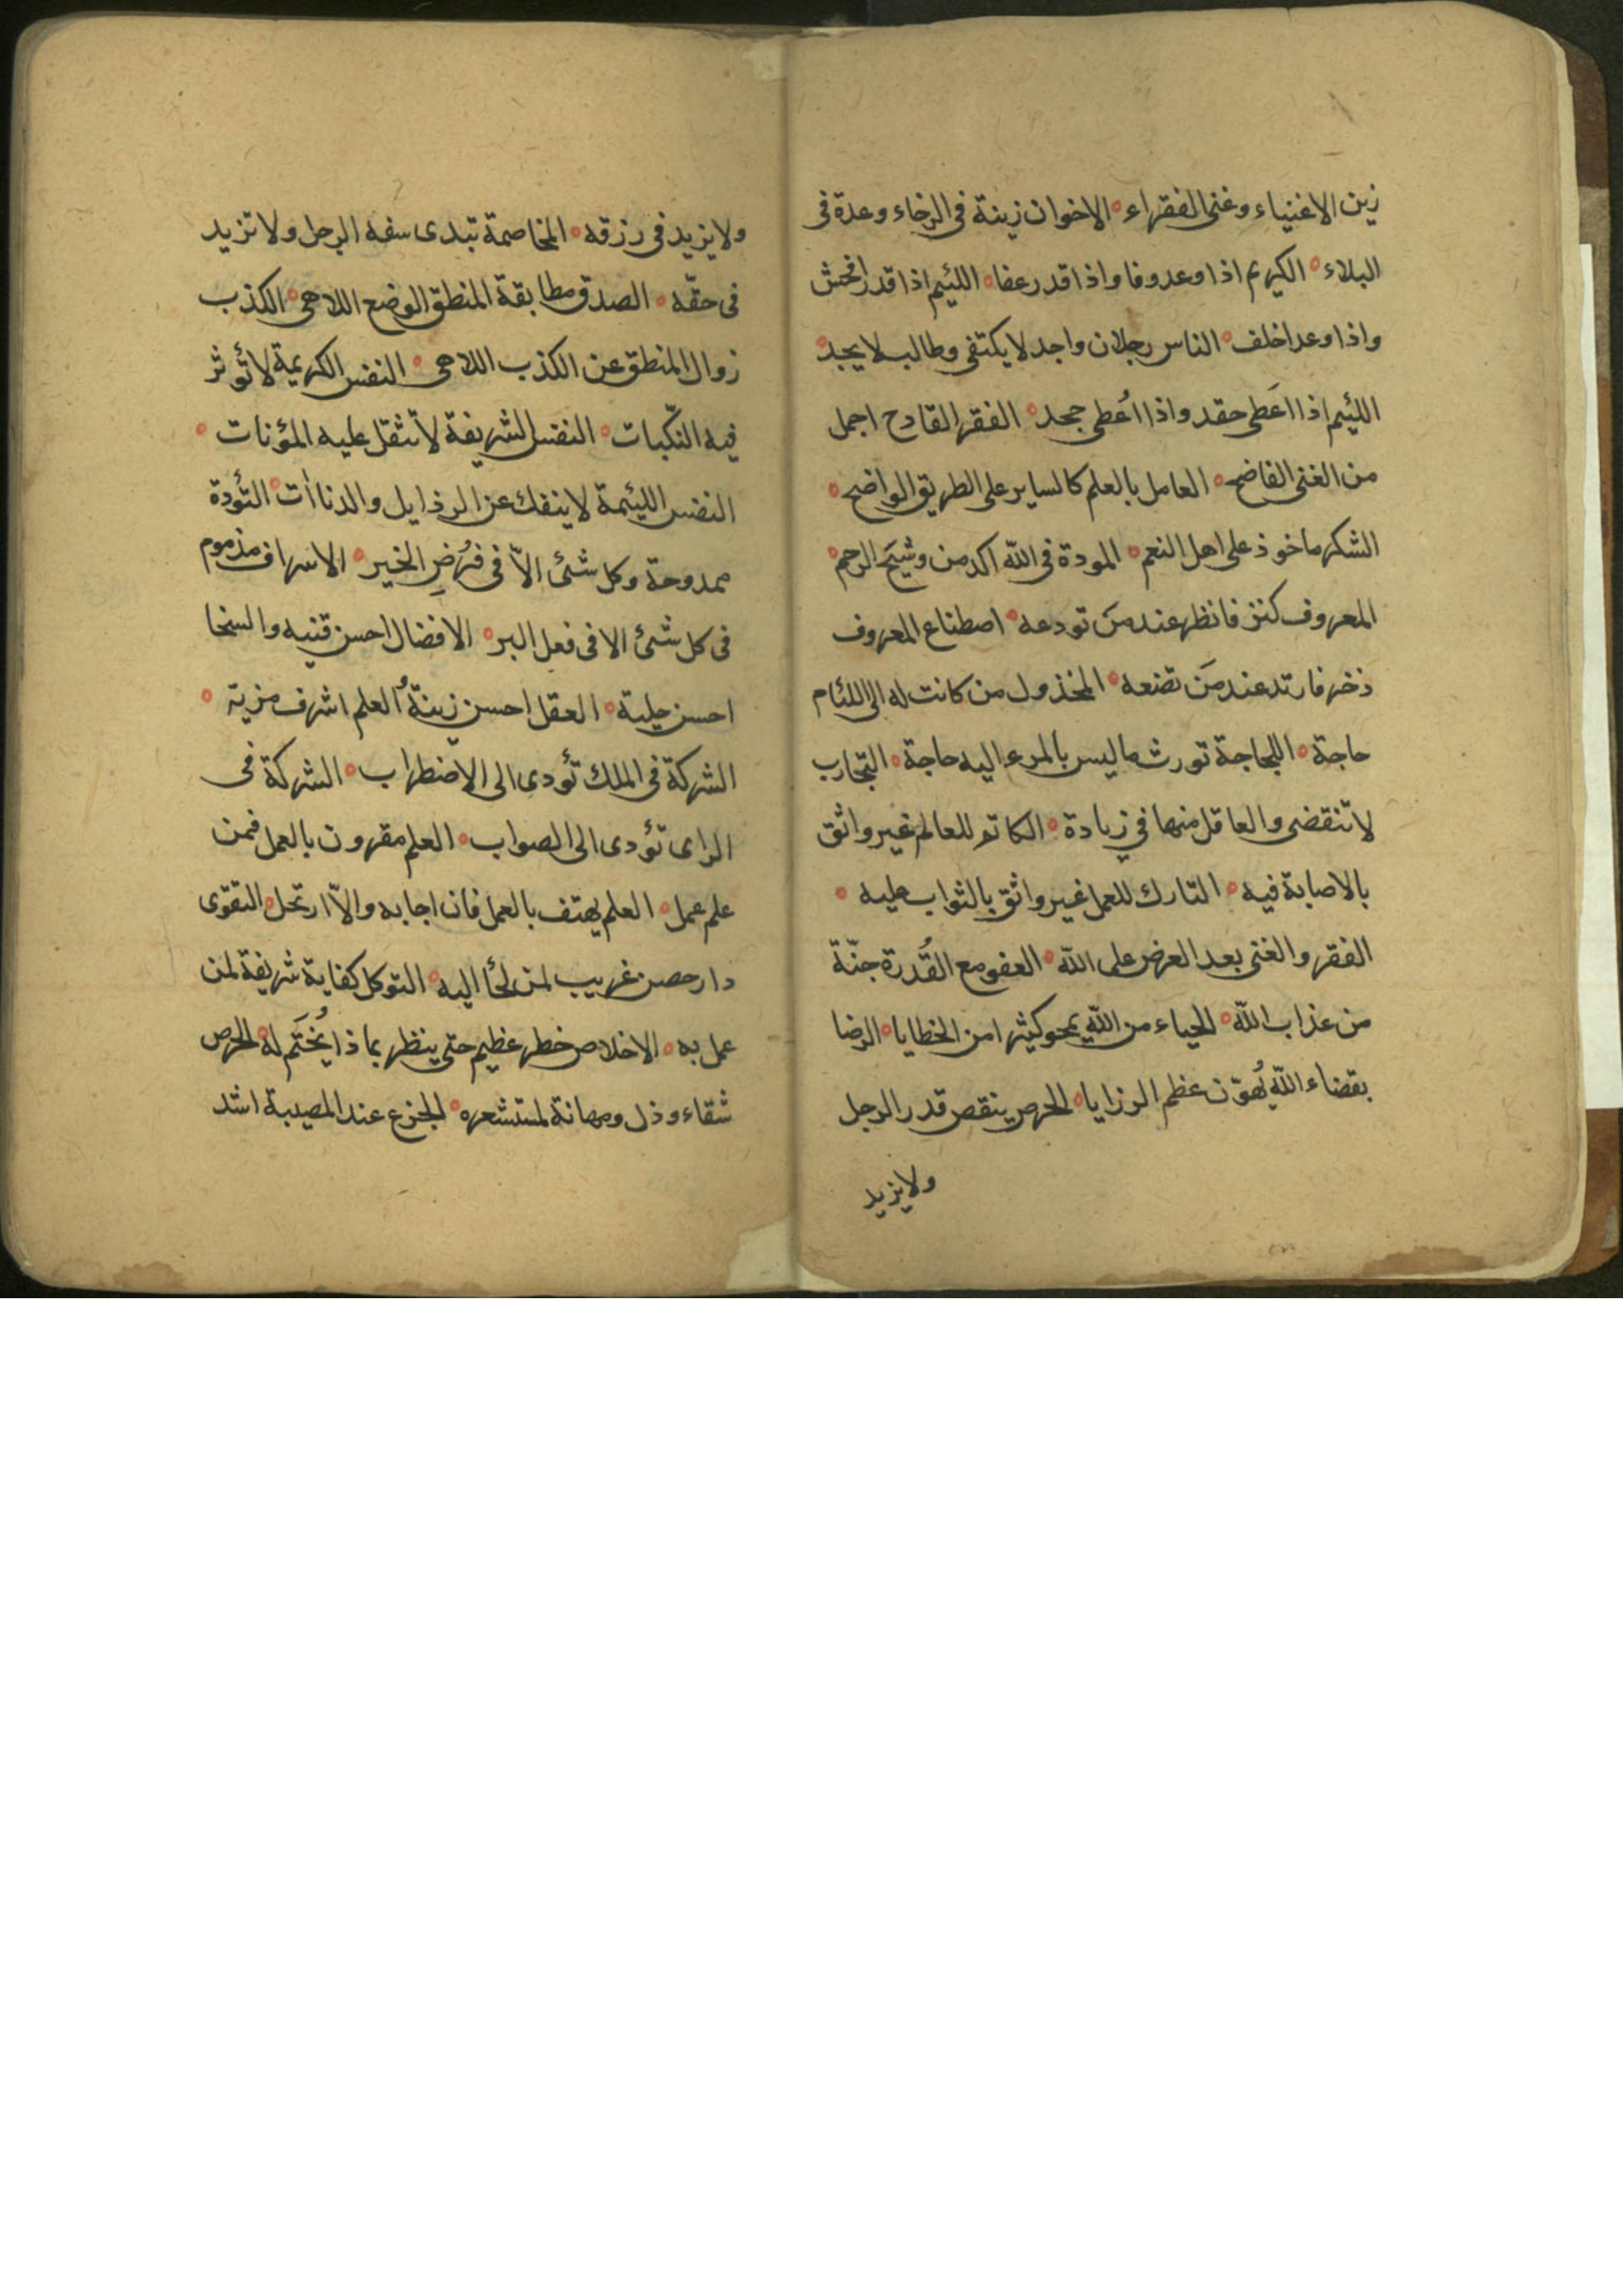 زين الاغنياء وغنى الفقراء ه الاخوان زينة فى الرخاء وعدة فى
البلاء ه الكريم اذا وعد وفا واذا قدر عفا ه اللئيم اذا قدر افحش
واذا وعد اخلف ه الناس رجلان واجد لا يكتفى وطالب لا يجد ه
اللئيم اذا اَعطى حقد واذا اُعطى جحد ه الفقر القادح اجمل
من الغنى الفاضح ه العامل بالعلم كالساير على الطريق الواضح ه
الشكر ماخوذ على اهل النعم ه المودة فى اللّه اكد من وشيَج الرحم ه
المعروف كنز فانظر عند مَن تودعه ه اصطناع المعروف
ذخر فارتد عند مَن تضنعه ه المخذول من كانت له الى اللئام
حاجة ه اللجاجة تورث ما ليس بالمرء اليه حاجة ه التجارب
لا تنقضى والعاقل منها في زيادة ه الكاتم للعالم غير واثق
بالاصابة فيه ه التارك للعمل غير واثق بالثواب عليه ه
الفقر والغنى بعد العرض على اللّه ه العفو مع القُدرة جنّة
من عذاب اللّه ه الحياء من اللّه يمحو كثيرا من الخطايا ه الرضا
بقضاء اللّه يُهوّن عظم الرزايا ه الحرص ينقص قدر الرجل
ولا يزيد
ولا يزيد فى رزقه ه المخاصمة تبدى سفه الرجل ولا تزيد
فى حقّه ه الصدق مطابقة المنطق الوضع اللاهى ه الكذب
زوال المنطق عن الكذب اللاهى ه النفس الكريمة لا تُوثر
فيه النكبات ه النفس الشريفة لا تثقل عليه المؤنات ه
النفس اللئيمة لا ينفك عن الرذايل والدناأت ه التؤدة
ممدوحة وكل شئ الاّ فى فُرَضِ الخير ه الاسراف مذموم
فى كل شئ الا فى فعل البر ه الافضال احسن قنيه والسخا
احسن حلية ه العقل احسن زينة ه العلم اشرف مزية ه
الشركة فى الملك تؤدى الى الاضطراب ه الشركة فى
الراى تؤدى الى الصواب ه العلم مقرون بالعمل فمن
علم عمل ه العلم يهتف بالعمل فان اجابه والاّ ارتحل ه التقوى
دار حصن غريب لمن لجأ اليه ه التوكل كفاية شريفة لمن
عمل به ه الاخلاص خطر عظيم حتى ينظر بماذا يُختَم له ه الحرص
شقاء وذل ومهانة لمستشعره ه الجزع عند المصيبة اشد